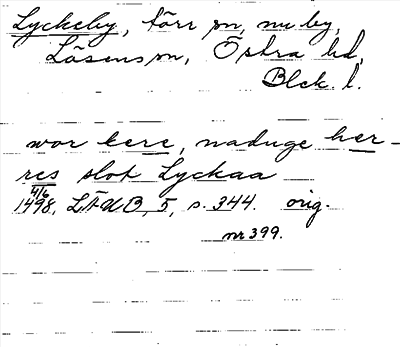 Lyckeby, förr sn, nu by,
Lösens sn, Östra hd,
Blek. l.
wor kere, naduge her-
res slot Lyckaa
4/6
1498. LÄUB, 5, s. 344. orig.
nr 399.